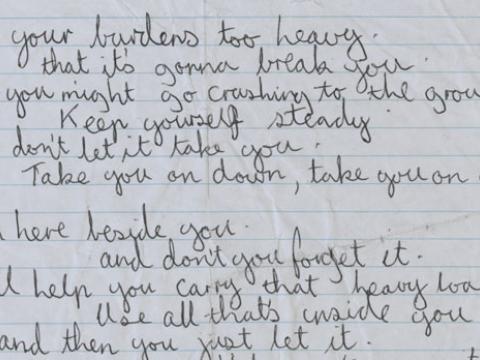 your burdens too heavy.
that it's gonna break you.
you might go crashing to the grou
Keep yourself steady
don't let it take you.
Take you on down, take you on
here beside you.
and don't you forget it.
help you carry that heavy loa
Use all that's inside you
and then you just let it.